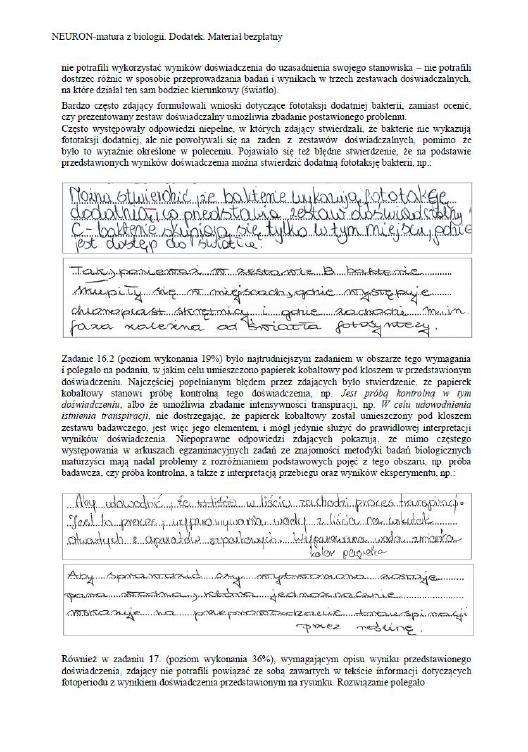 NEURON-matura z biologii. Dodatek. Materiał bezpłatny
nie potrafili wykorzystać wyników doświadczenia do uzasadnienia swojego stanowiska – nie potrafili
dostrzec różnic w sposobie przeprowadzania badań i wynikach w trzech zestawach doświadczalnych,
na które działał ten sam bodziec kierunkowy (światło).
Bardzo często zdający formułowali wnioski dotyczące fototaksji dodatniej bakterii, zamiast ocenić,
czy prezentowany zestaw doświadczalny umożliwia zbadanie postawionego problemu.
Często występowały odpowiedzi niepełne, w których zdający stwierdzali, że bakterie nie wykazują
fototaksji dodatniej, ale nie powoływali się na żaden z zestawów doświadczalnych, pomimo że
było to wyraźnie określone w poleceniu. Pojawiało się też błędne stwierdzenie, że na podstawie
przedstawionych wyników doświadczenia można stwierdzić dodatnią fototaksję bakterii, np.:
Można stwierdzić że bakterie wykazują fototaksję
dodatnią, co przedstawia zestaw doświadczalny
C - bakterie skupiają się tylko w tym miejscu, gdzie
jest dostęp do światła.
Tak, ponieważ w zestawie B bakterie
skupiły się w miejscach, gdzie występuje
chloroplast skrętnicy i gdzie zachodzi m.in.
faza zależna od światła fotosyntezy.
Zadanie 16.2 (poziom wykonania 19%) było najtrudniejszym zadaniem w obszarze tego wymagania
i polegało na podaniu, w jakim celu umieszczono papierek kobaltowy pod kloszem w przedstawionym
doświadczeniu. Najczęściej popełnianym błędem przez zdających było stwierdzenie, że papierek
kobaltowy stanowi próbę kontrolną tego doświadczenia, np. Jest próbą kontrolną w tym
doświadczeniu, albo że umożliwia zbadanie intensywności transpiracji, np. W celu udowodnienia
istnienia transpiracji, nie dostrzegając, że papierek kobaltowy został umieszczony pod kloszem
zestawu badawczego, jest więc jego elementem, i mógł jedynie służyć do prawidłowej interpretacji
wyników doświadczenia. Niepoprawne odpowiedzi zdających pokazują, że mimo częstego
występowania w arkuszach egzaminacyjnych zadań ze znajomości metodyki badań biologicznych
maturzyści mają nadal problemy z rozróżnianiem podstawowych pojęć z tego obszaru, np. próba
badawcza, czy próba kontrolna, a także z interpretacją przebiegu oraz wyników eksperymentu, np.:
Aby udowodnić, że w liściu zachodzi proces transpiracji.
Jest to proces wyparowywania wody z liścia na skutek
otwartych aparatów szparkowych. Wyparowana woda zmienia
kolor papierka
Aby sprawdzić czy wytworzona zostaje
para wodna, która jednoznacznie
wskazuje na przeprowadzanie transpiracji
przez roślinę.
Również w zadaniu 17. (poziom wykonania 36%), wymagającym opisu wyniku przedstawionego
doświadczenia, zdający nie potrafili powiązać ze sobą zawartych w tekście informacji dotyczących
fotoperiodu z wynikiem doświadczenia przedstawionym na rysunku. Rozwiązanie polegało